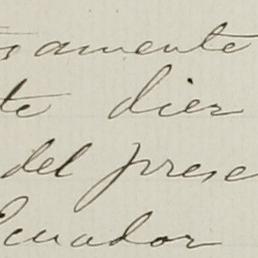 samente
te dier
del prese
Ecuador